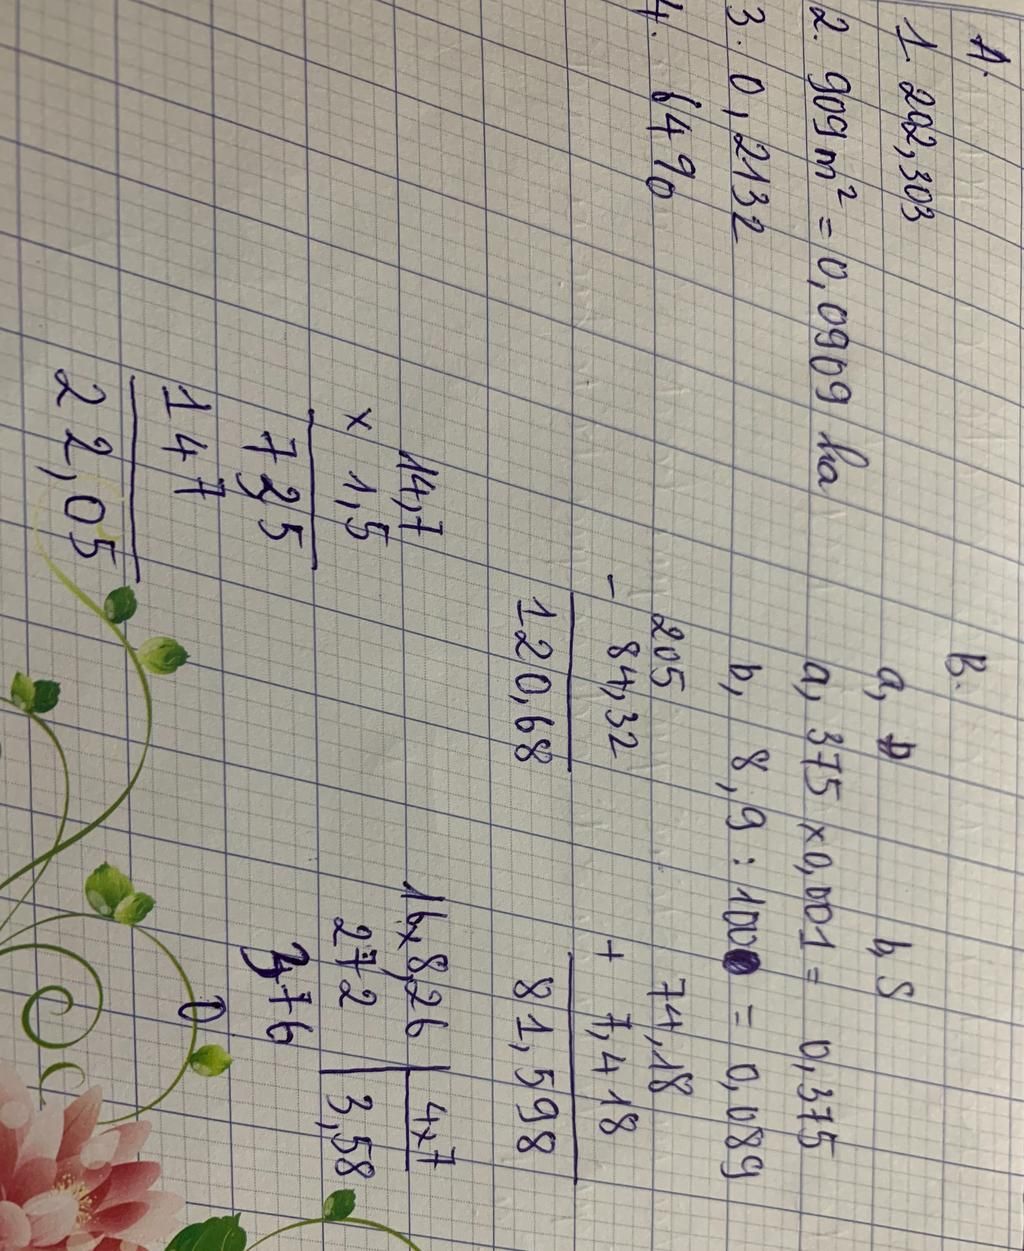 A.
1. 202,303
2. 909 m² = 0,0909 ha
3. 0,2132
4. 64%
B.
a, Đ b, S
a, 375 x 0,001 = 0,375
b, 8,9 : 100 = 0,089
205
- 84,32
120,68
74,18
+ 7,418
81,598
14,7
x 1,5
735
147
22,05
16x8,26 4x7
272 3,58
376
0